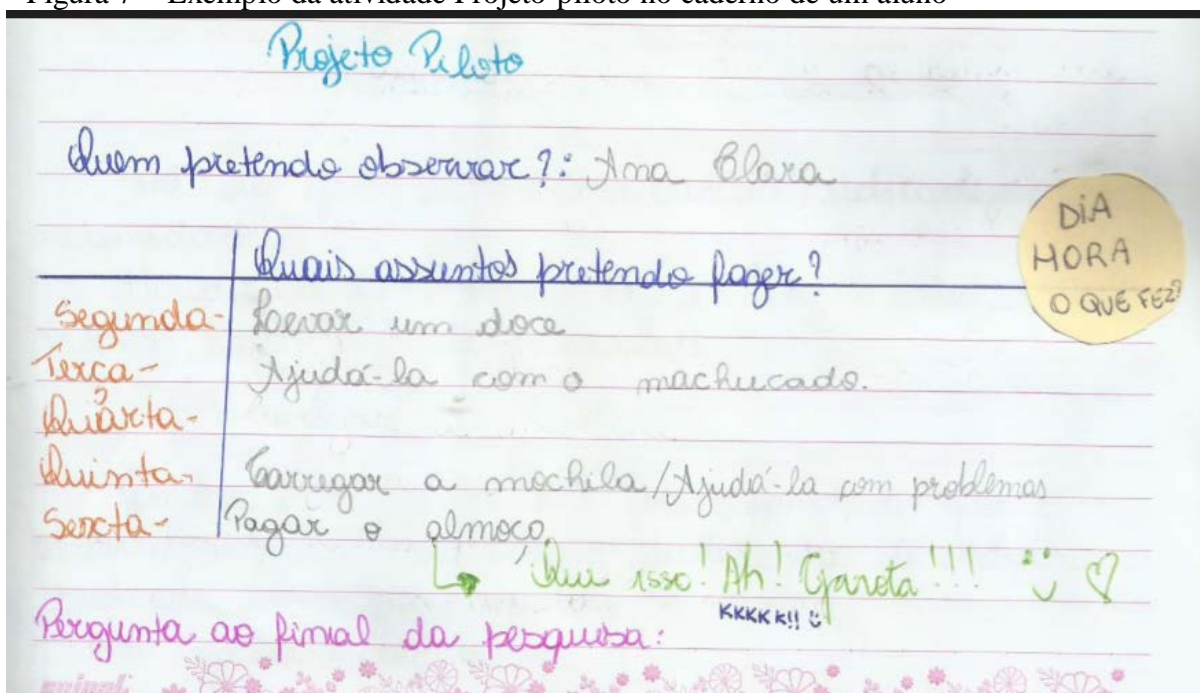 Figura 7 – Exemplo da atividade Projeto-piloto no caderno de um aluno
Projeto Piloto
Quem pretendo observar?: Ana Clara
DIA
HORA
O QUE FEZ?
Quais assuntos pretendo fazer?
Segunda- Levar um doce
Terça- Ajudá-la com o machucado.
Quarta-
Quinta- Carregar a mochila/Ajudá-la com problemas
Sexta- Pagar o almoço
Que isso! Ah! Garota!!!
KKKKK!!
Pergunta ao final da pesquisa: